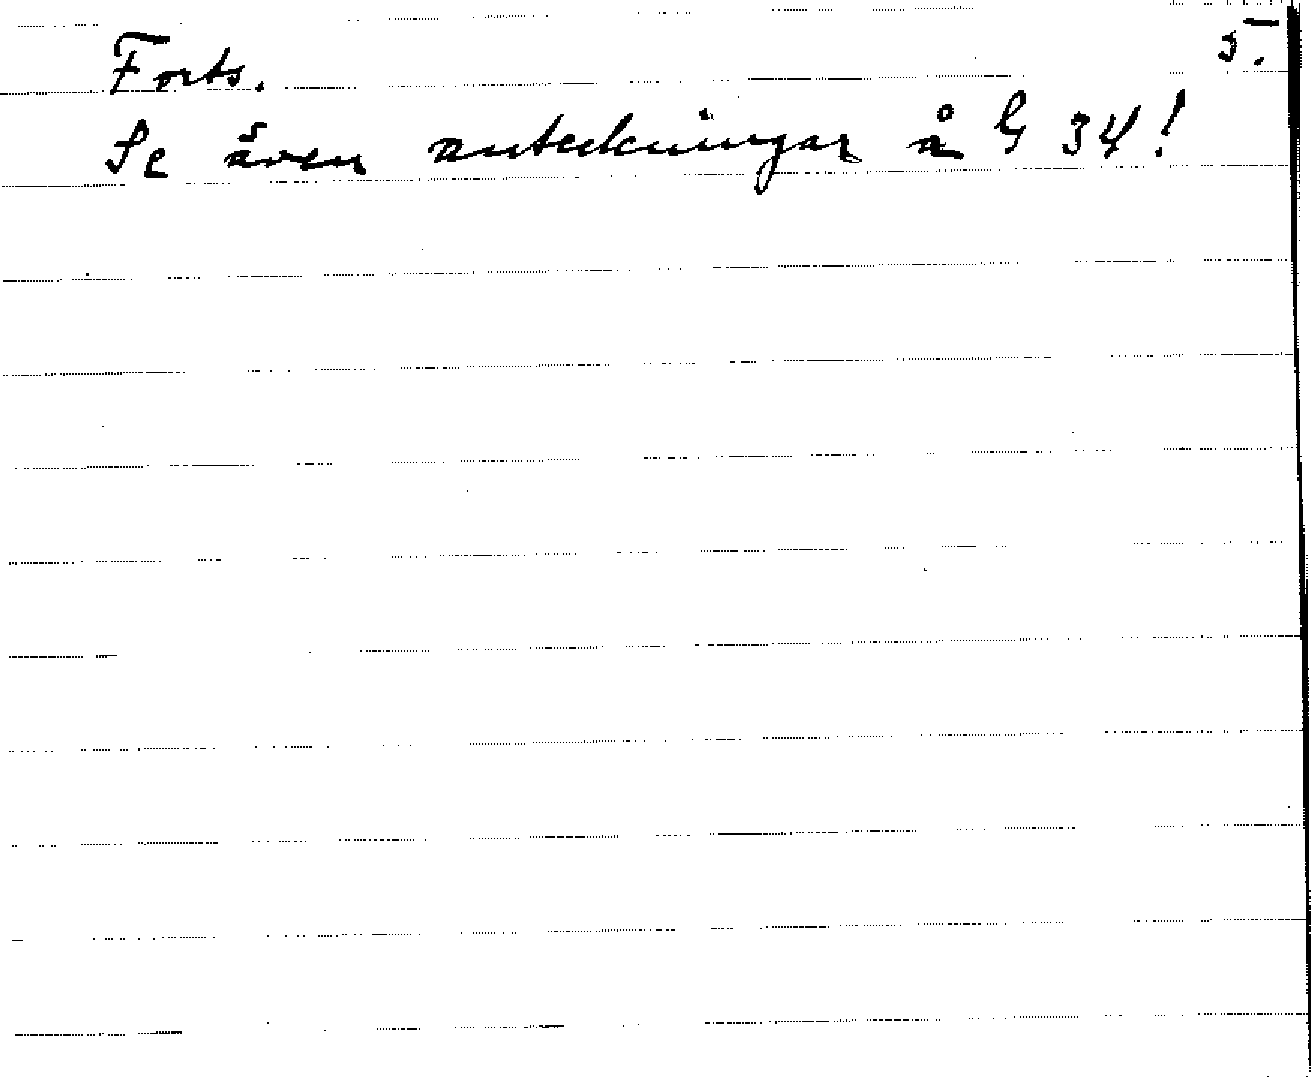 Forts. 5.
Se även anteckningar å G 34!